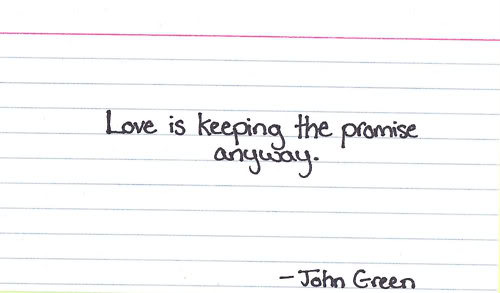 Love is keeping the promise
anyway.
- John Green